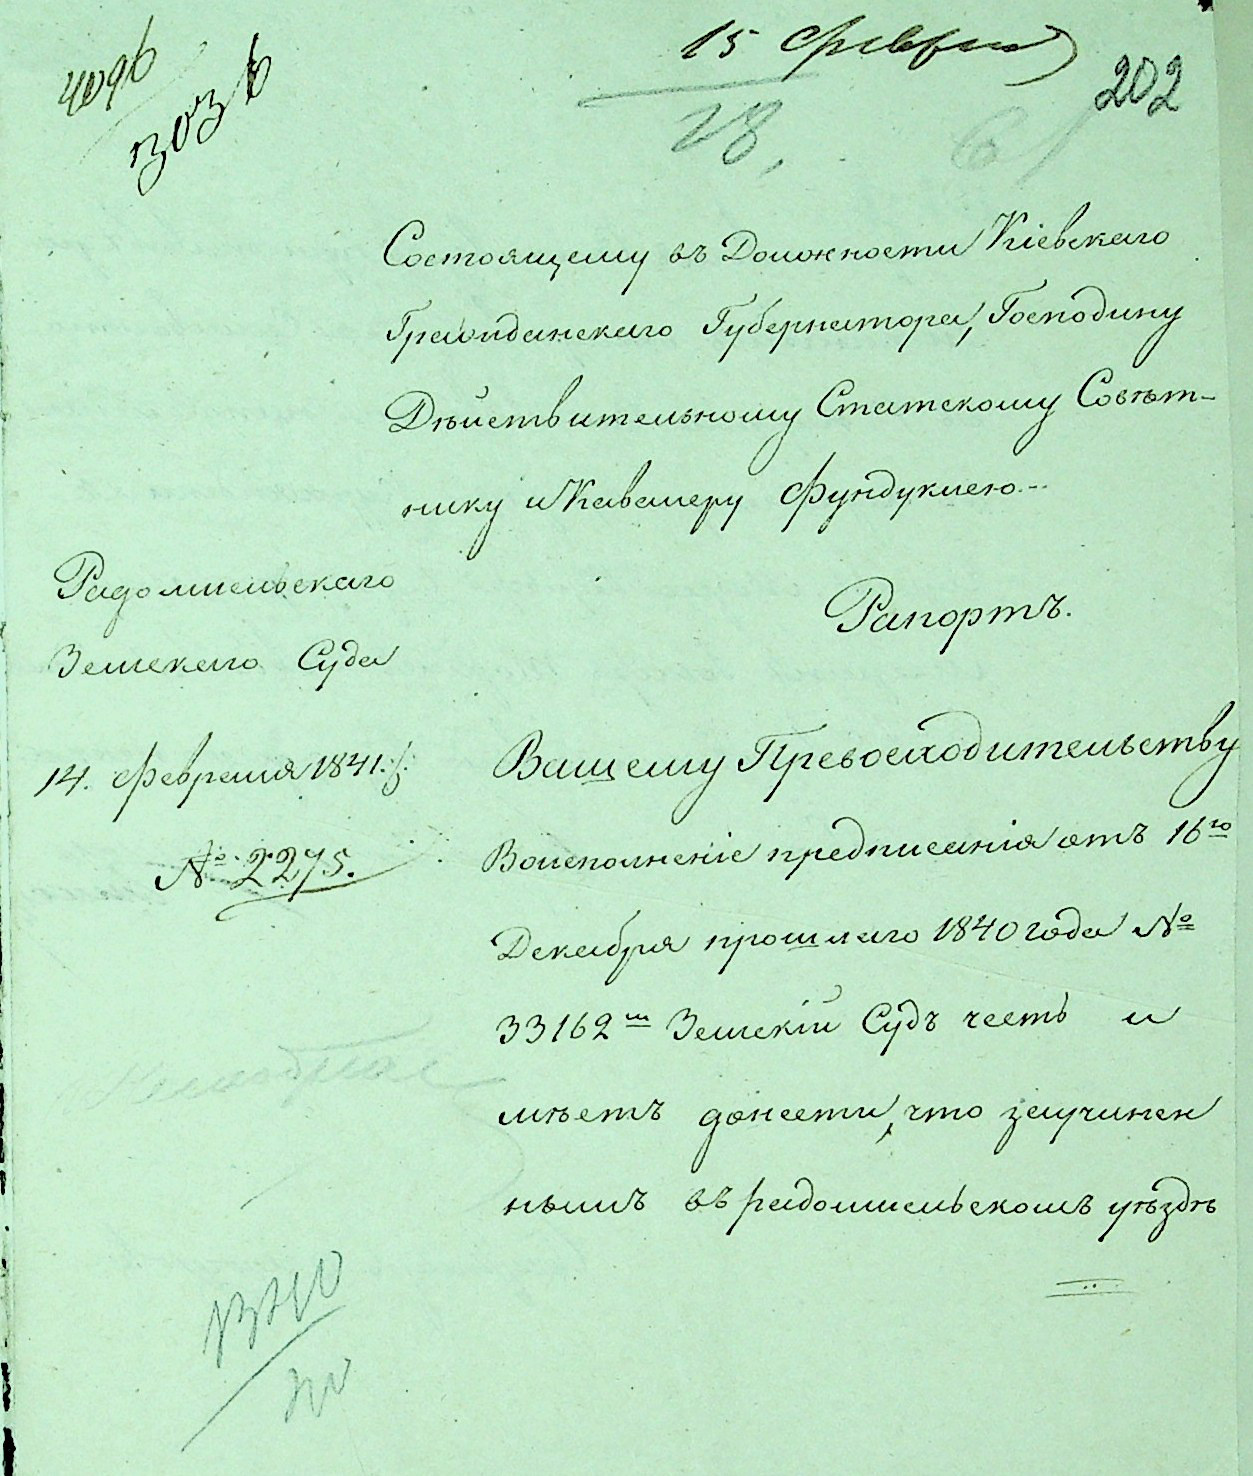 4096
3036
15 Февраля
202
28.
Состоящему въ Должности Кіевскаго
Гражданскаго Губернатора, Господину
Дѣйствительному Статскому Совѣт-
нику и Кавалеру Фундуклею.
Радомысльскаго
Земскаго Суда
14. Февраля 1841.
№ 2275.
Рапортъ.
Вашему Превосходительству
Воисполненіе предписанія отъ 16го
Декабря прошлаго 1840 года №
33162м Земскій Судъ честь и
мѣетъ донести, что заучинен
нымъ въ радомысльскомъ уѣздѣ